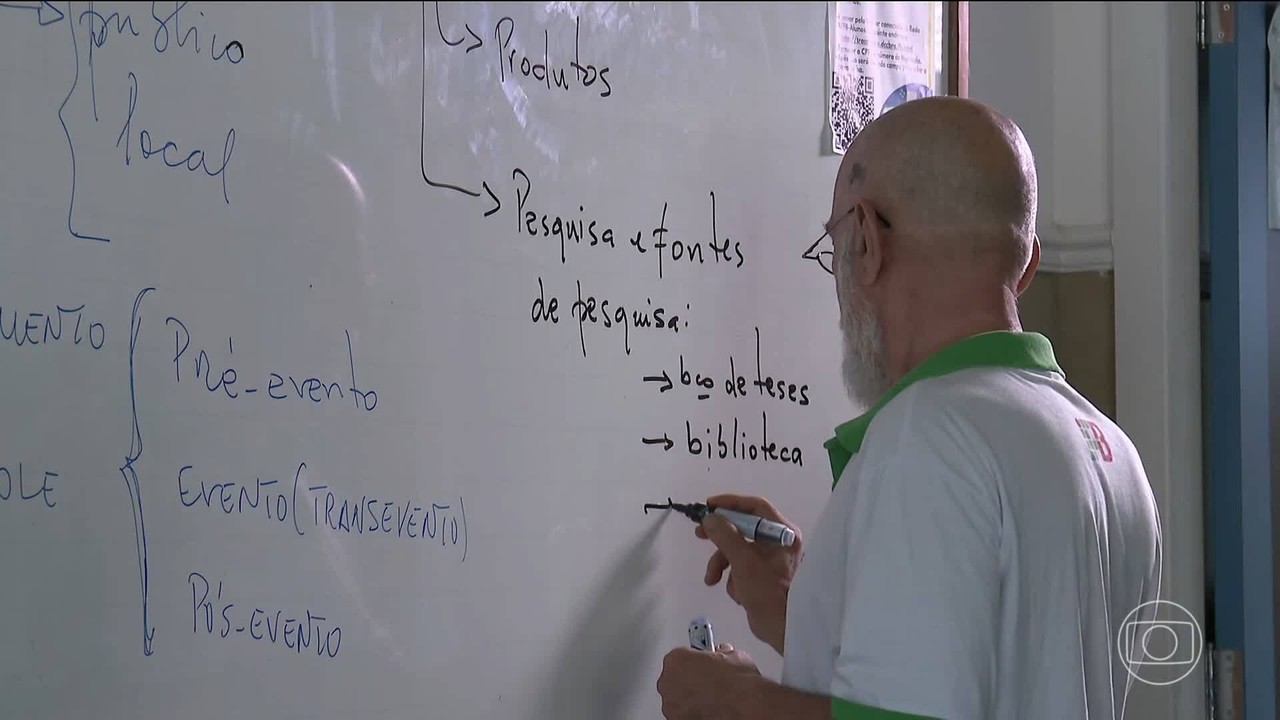 público
local
Produtos
Pesquisa e fontes
de pesquisa:
→ bco de teses
→ biblioteca
MENTO
Pré-evento
OLE
EVENTO (TRANSEVENTO)
PÓS-EVENTO
B